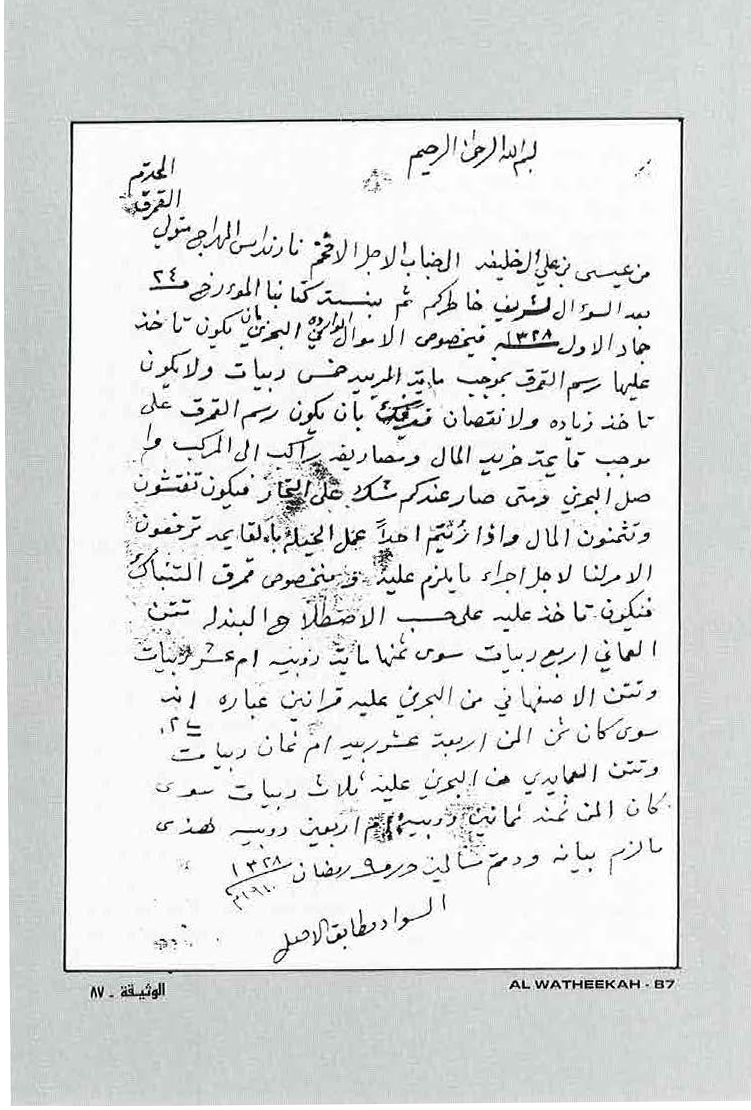 بسم الله الرحمن الرحيم
من عيسى بن علي الخليفه الجناب الاجل الافخم نارنداس المهراج متولي القمرق المحترم
بعد السوءال لشريف خاطركم ثم بنسبت كتابنا الموءرخ ٢٤
جماد الاول ١٣٢٨ فيخصوص الاموال الوارده البحرين بان يكون تاخذ
عليها رسم القمرق بموجب مايه المربيه خمس ربيات ولا يكون
تاخذ زياده ولا نقصان بان يكون رسم القمرق على
موجب قايمة خريد المال ومصاريفه راكب الى المركب وا
صل البحرين ومتى صار عندكم شك على التجار فيكون تفتشون
وتثمنون المال واذا رئيتم احداً عمل الحيله بالقايمه ترفعون
الامر لنا لاجل اجراء ما يلزم عليه ومنخصوص قمرق التنباك
فيكون تاخذ عليه على حسب الاصطلاح البندله تتن
العماني اربع ربيات سوى ثمنها ماية روبيه ام عشر ربيات
وتتن الاصفهاني من البحرين عليه قرانين عباره
سوى كان ثمن المن اربعة عشر ربيه ام ثمان ربيات
وتتن من البحرين عليه ثلاث ربيات سوى
كان المن ثمنه ثمانين روبيه ام اربعين روبيه هذى
مالزم بيانه ودمتم سالمين حرر ٩ رمضان ١٣٢٨
١٩١٠م
السواد مطابق الاصل
الوثيقة - ٨٧
AL WATHEEKAH - 87